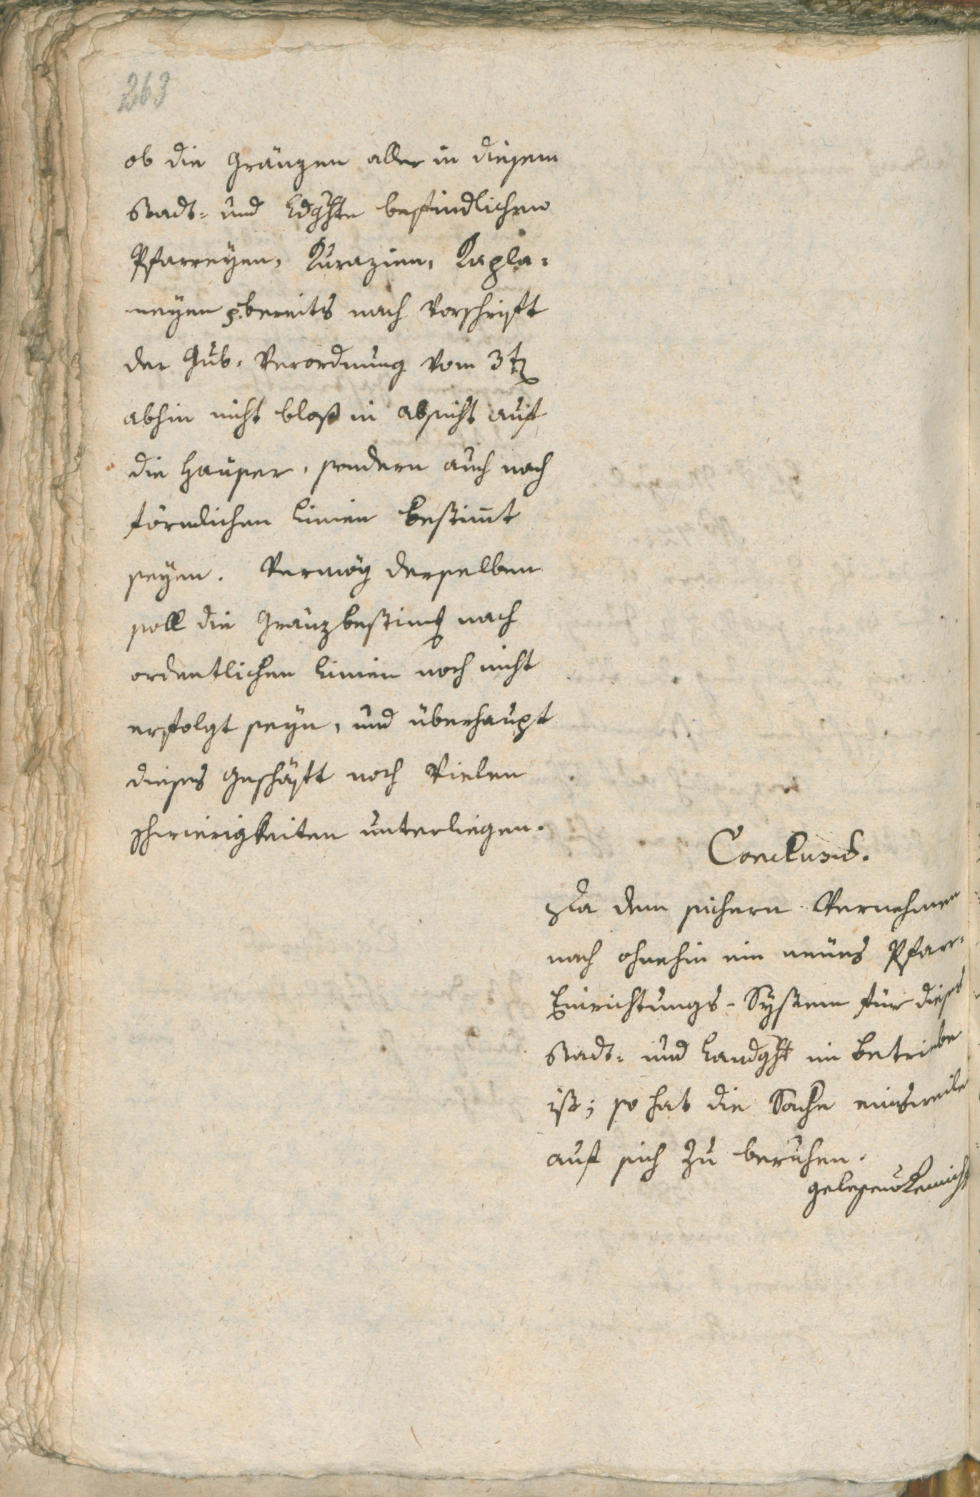 263
ob die Gränzen aller in diesem
Stadt- und Ldghte befindlichen
Pfarreyen, Kurazien, Kapla-
neyen p. bereits nach Vorschrift
der Gub. Verordnung vom 3t
abhin nicht bloß in absicht auf
die Häuser, sondern auch nach
förmlichen Linien bestimt
seyen. Vermög derselben
soll die Gränzbestimg nach
ordentlichen Linien noch nicht
erfolgt seyn, und überhaupt
dieses Geschäft noch Vielen
Schwierigkeiten unterliegen.
Conclusum.
Da dem sichern Vernehmen
nach ohnehin ein neues Pfarr-
Einrichtungs-System für dieses
Stadt- und Landght im betriebe
ist; so hat die Sache einsweile
auf sich zu beruhen.
gelesen